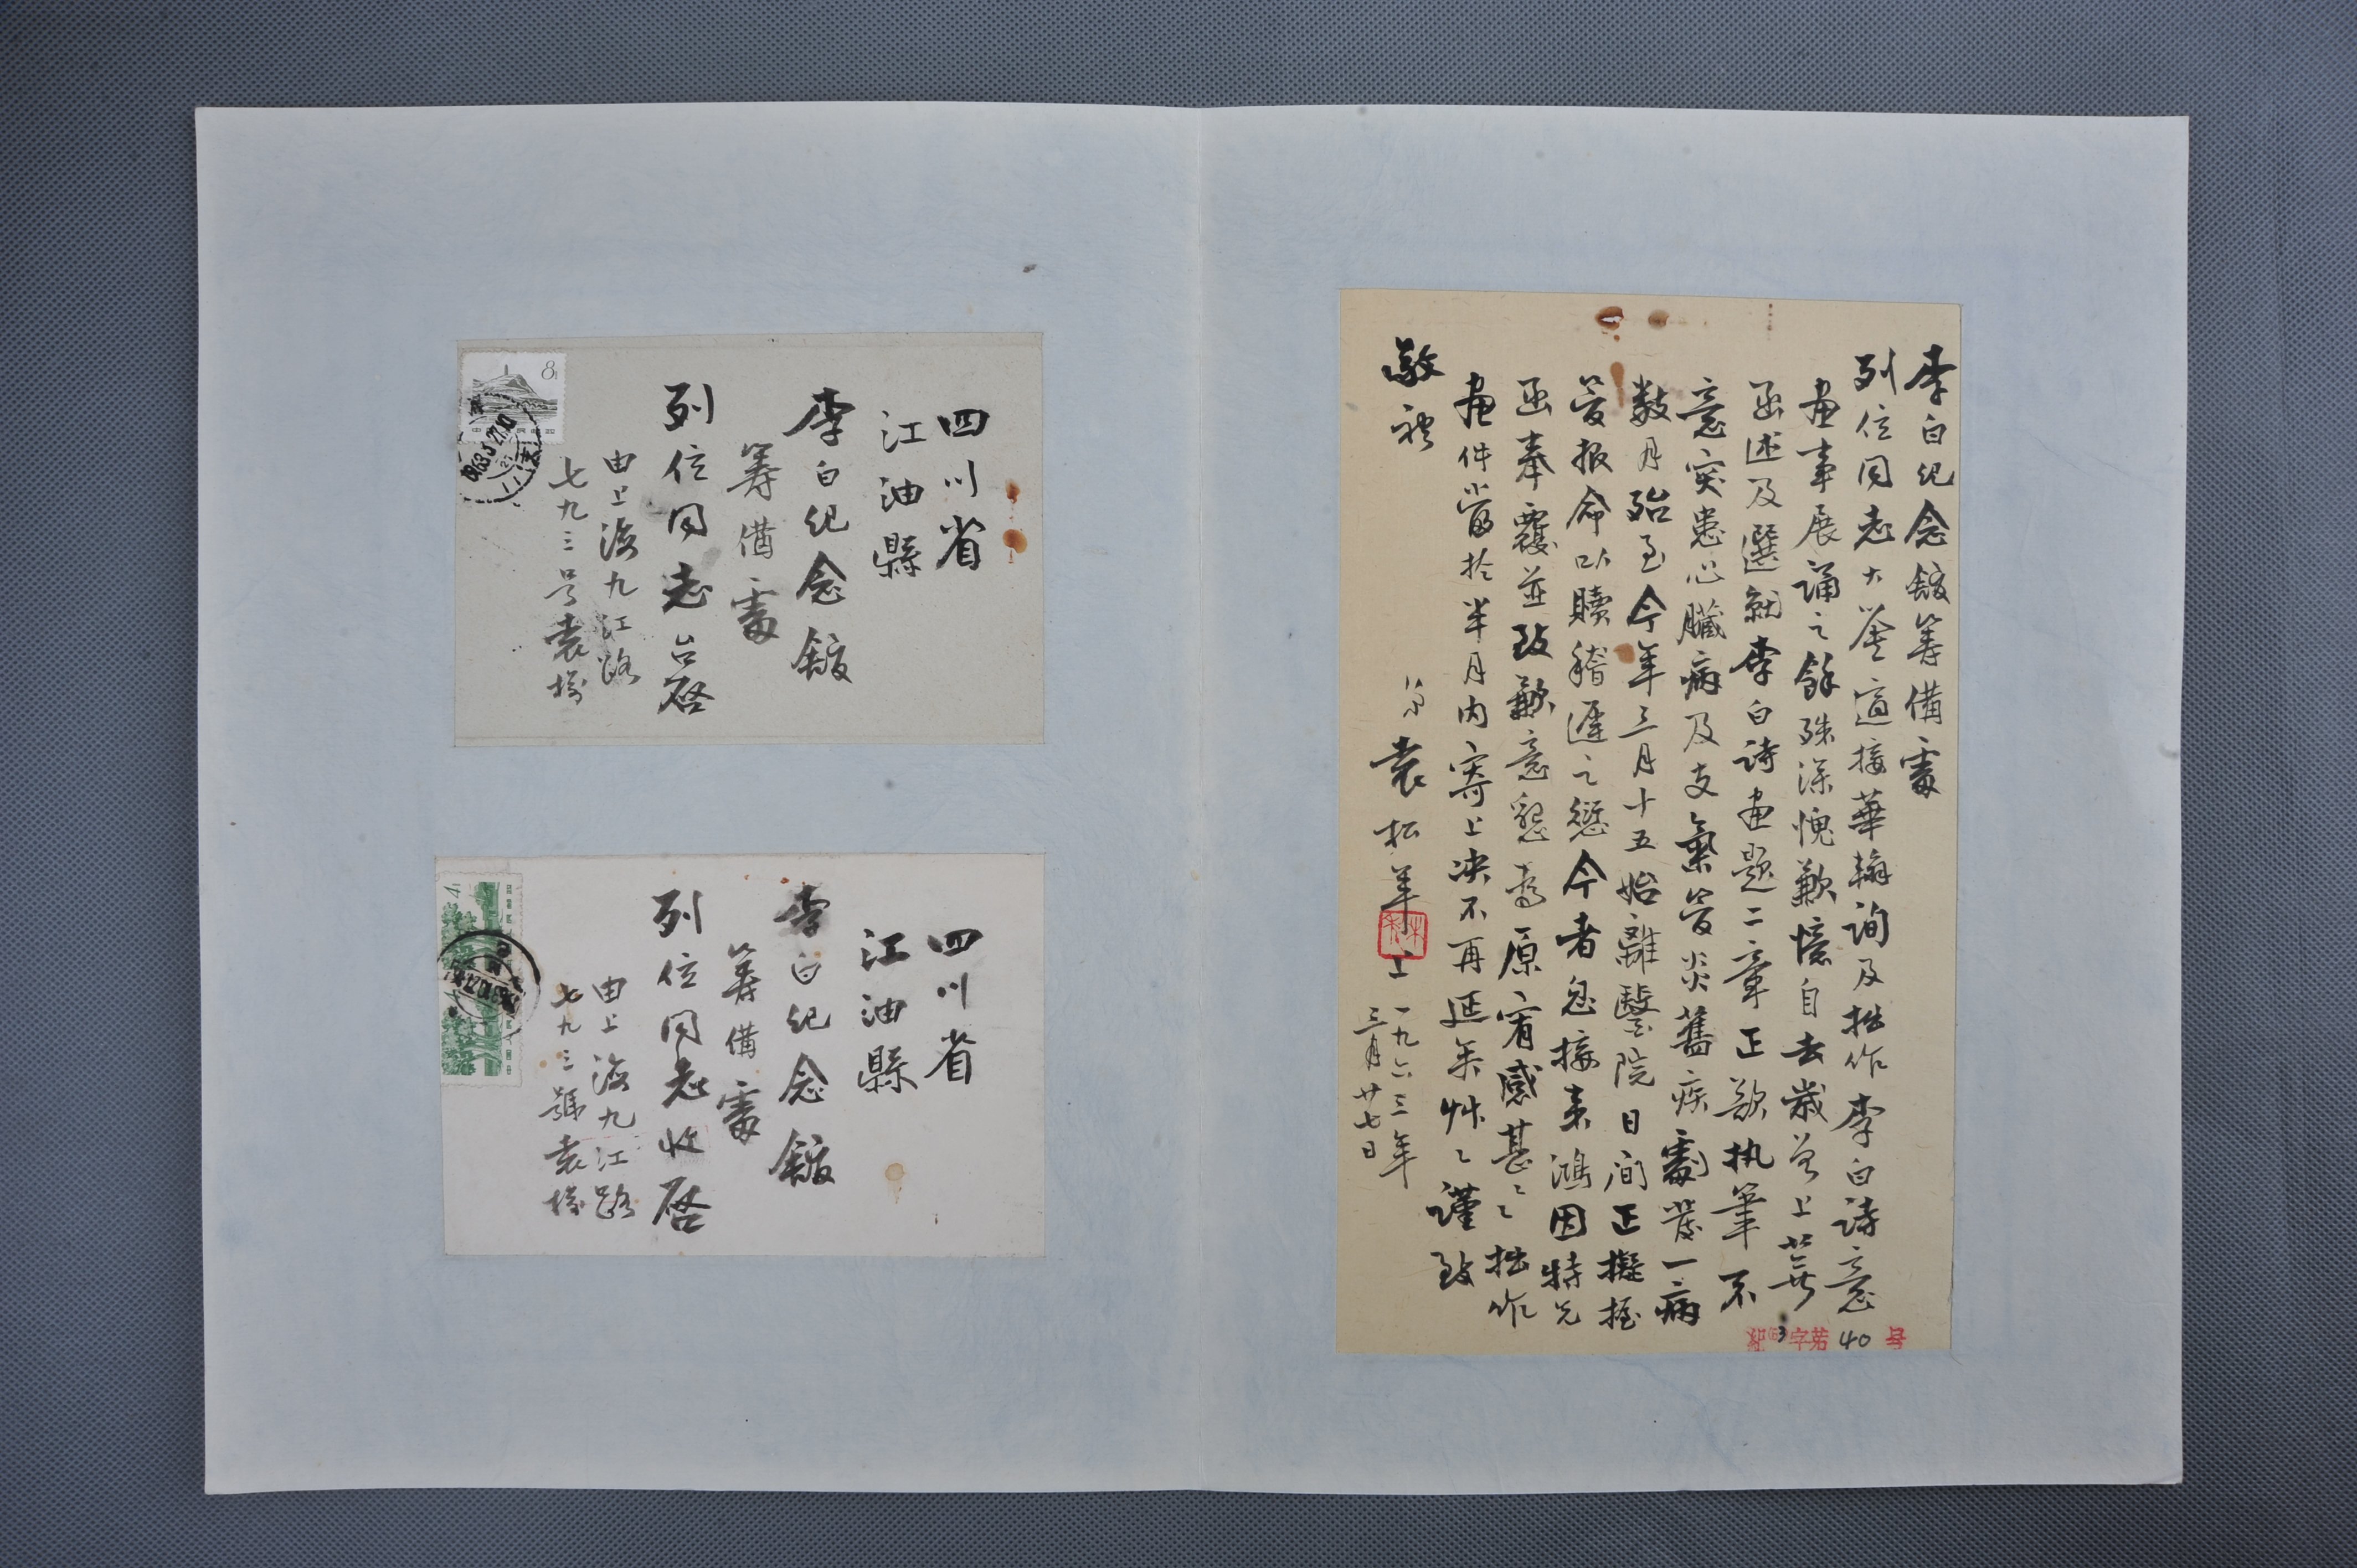 李白纪念館筹備處
列位同志大鉴適接華翰詢及拙作李白诗意
畫事展誦之餘殊深愧歉憶自去歲曾上芜
函述及選就李白诗畫题二章正欲执筆不
意突患心臓病及支氣管炎舊疾劇發一病
数月殆至今年三月十五始離醫院日间正擬握
管报命以贖稽遲之愆今者忽接来鴻因特先
函奉覆並致歉意懇希原宥感甚〻拙作
畫件當於半月内寄上决不再延矣艸〻謹致
敬礼
袁松年上
一九六三年
三月廿七日
40 号
四川省
江油縣
李白纪念館
筹備處
列位同志台启
由上海九江路
七九三号袁椷
8
四川省
江油縣
李白纪念館
筹備處
列位同志收启
由上海九江路
七九三號袁椷
4